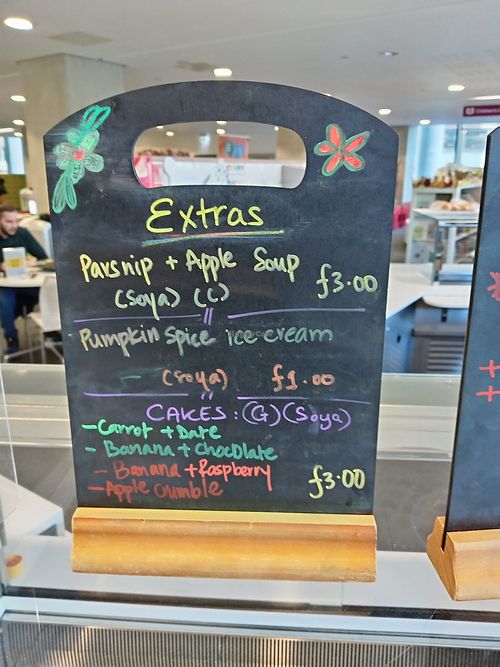 Extras
Parsnip + Apple Soup
(Soya) (C) £3.00
Pumpkin Spice ice cream
(soya) £1.00
CAKES: (G) (Soya)
- Carrot + Date
- Banana + Chocolate
- Banana + Raspberry
- Apple Crumble £3.00